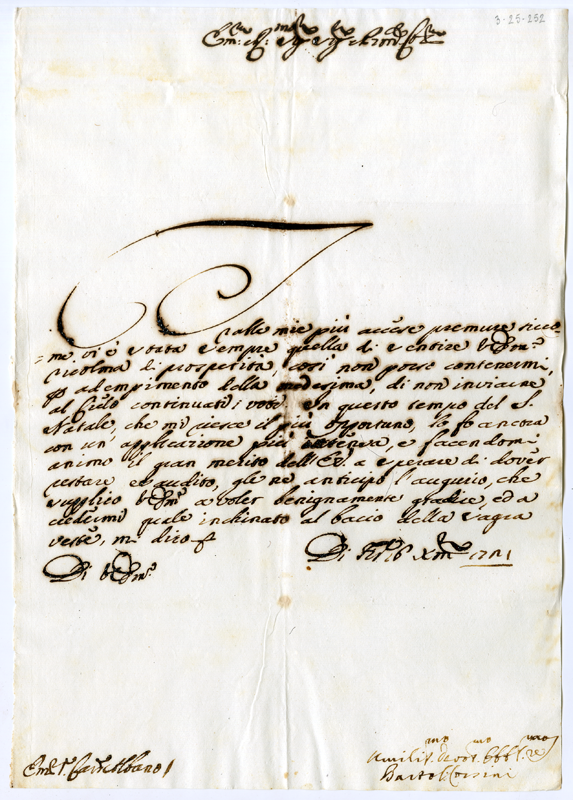 3-25-252
Tralle mie più accese premure sicco
=me vi è stata sempre quella di sentire V. Em.ᵃ
ricolma di prosperità, così non posso contenermi,
p adempimento della medesima, di non inviarne
al Cielo continuati voti. In questo tempo del S.
Natale, che mi pare il più opportuno, lo fo ancora
con un' applicazione più intensa, e facendomi
animo il gran merito dell' E.V. a sperare di dover
restare esaudito, gliene anticipo l'augurio, che
supplico V. Em.ᵃ a voler benignamente gradire, ed a
credermi quale inchinato al bacio della sagra
veste, mi dico
Di V. Em.ᵃ Di 16 Xmbre 1721
Em. S. Card. Albano
Umiliss. Devot. Obbl. Se
Bartol. Corsini